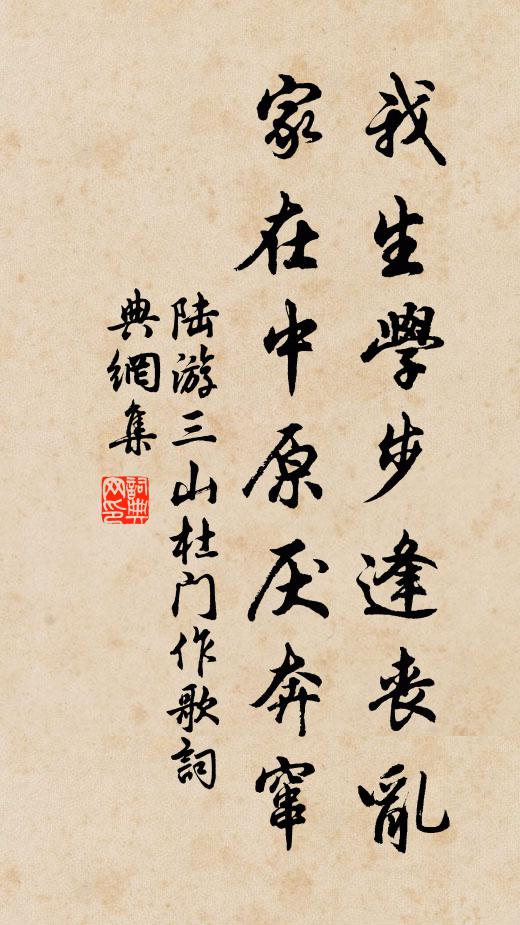 我生學步逢喪亂
家在中原厌奔竄
陆游三山杜门作歌詞
典網集
詞典网印